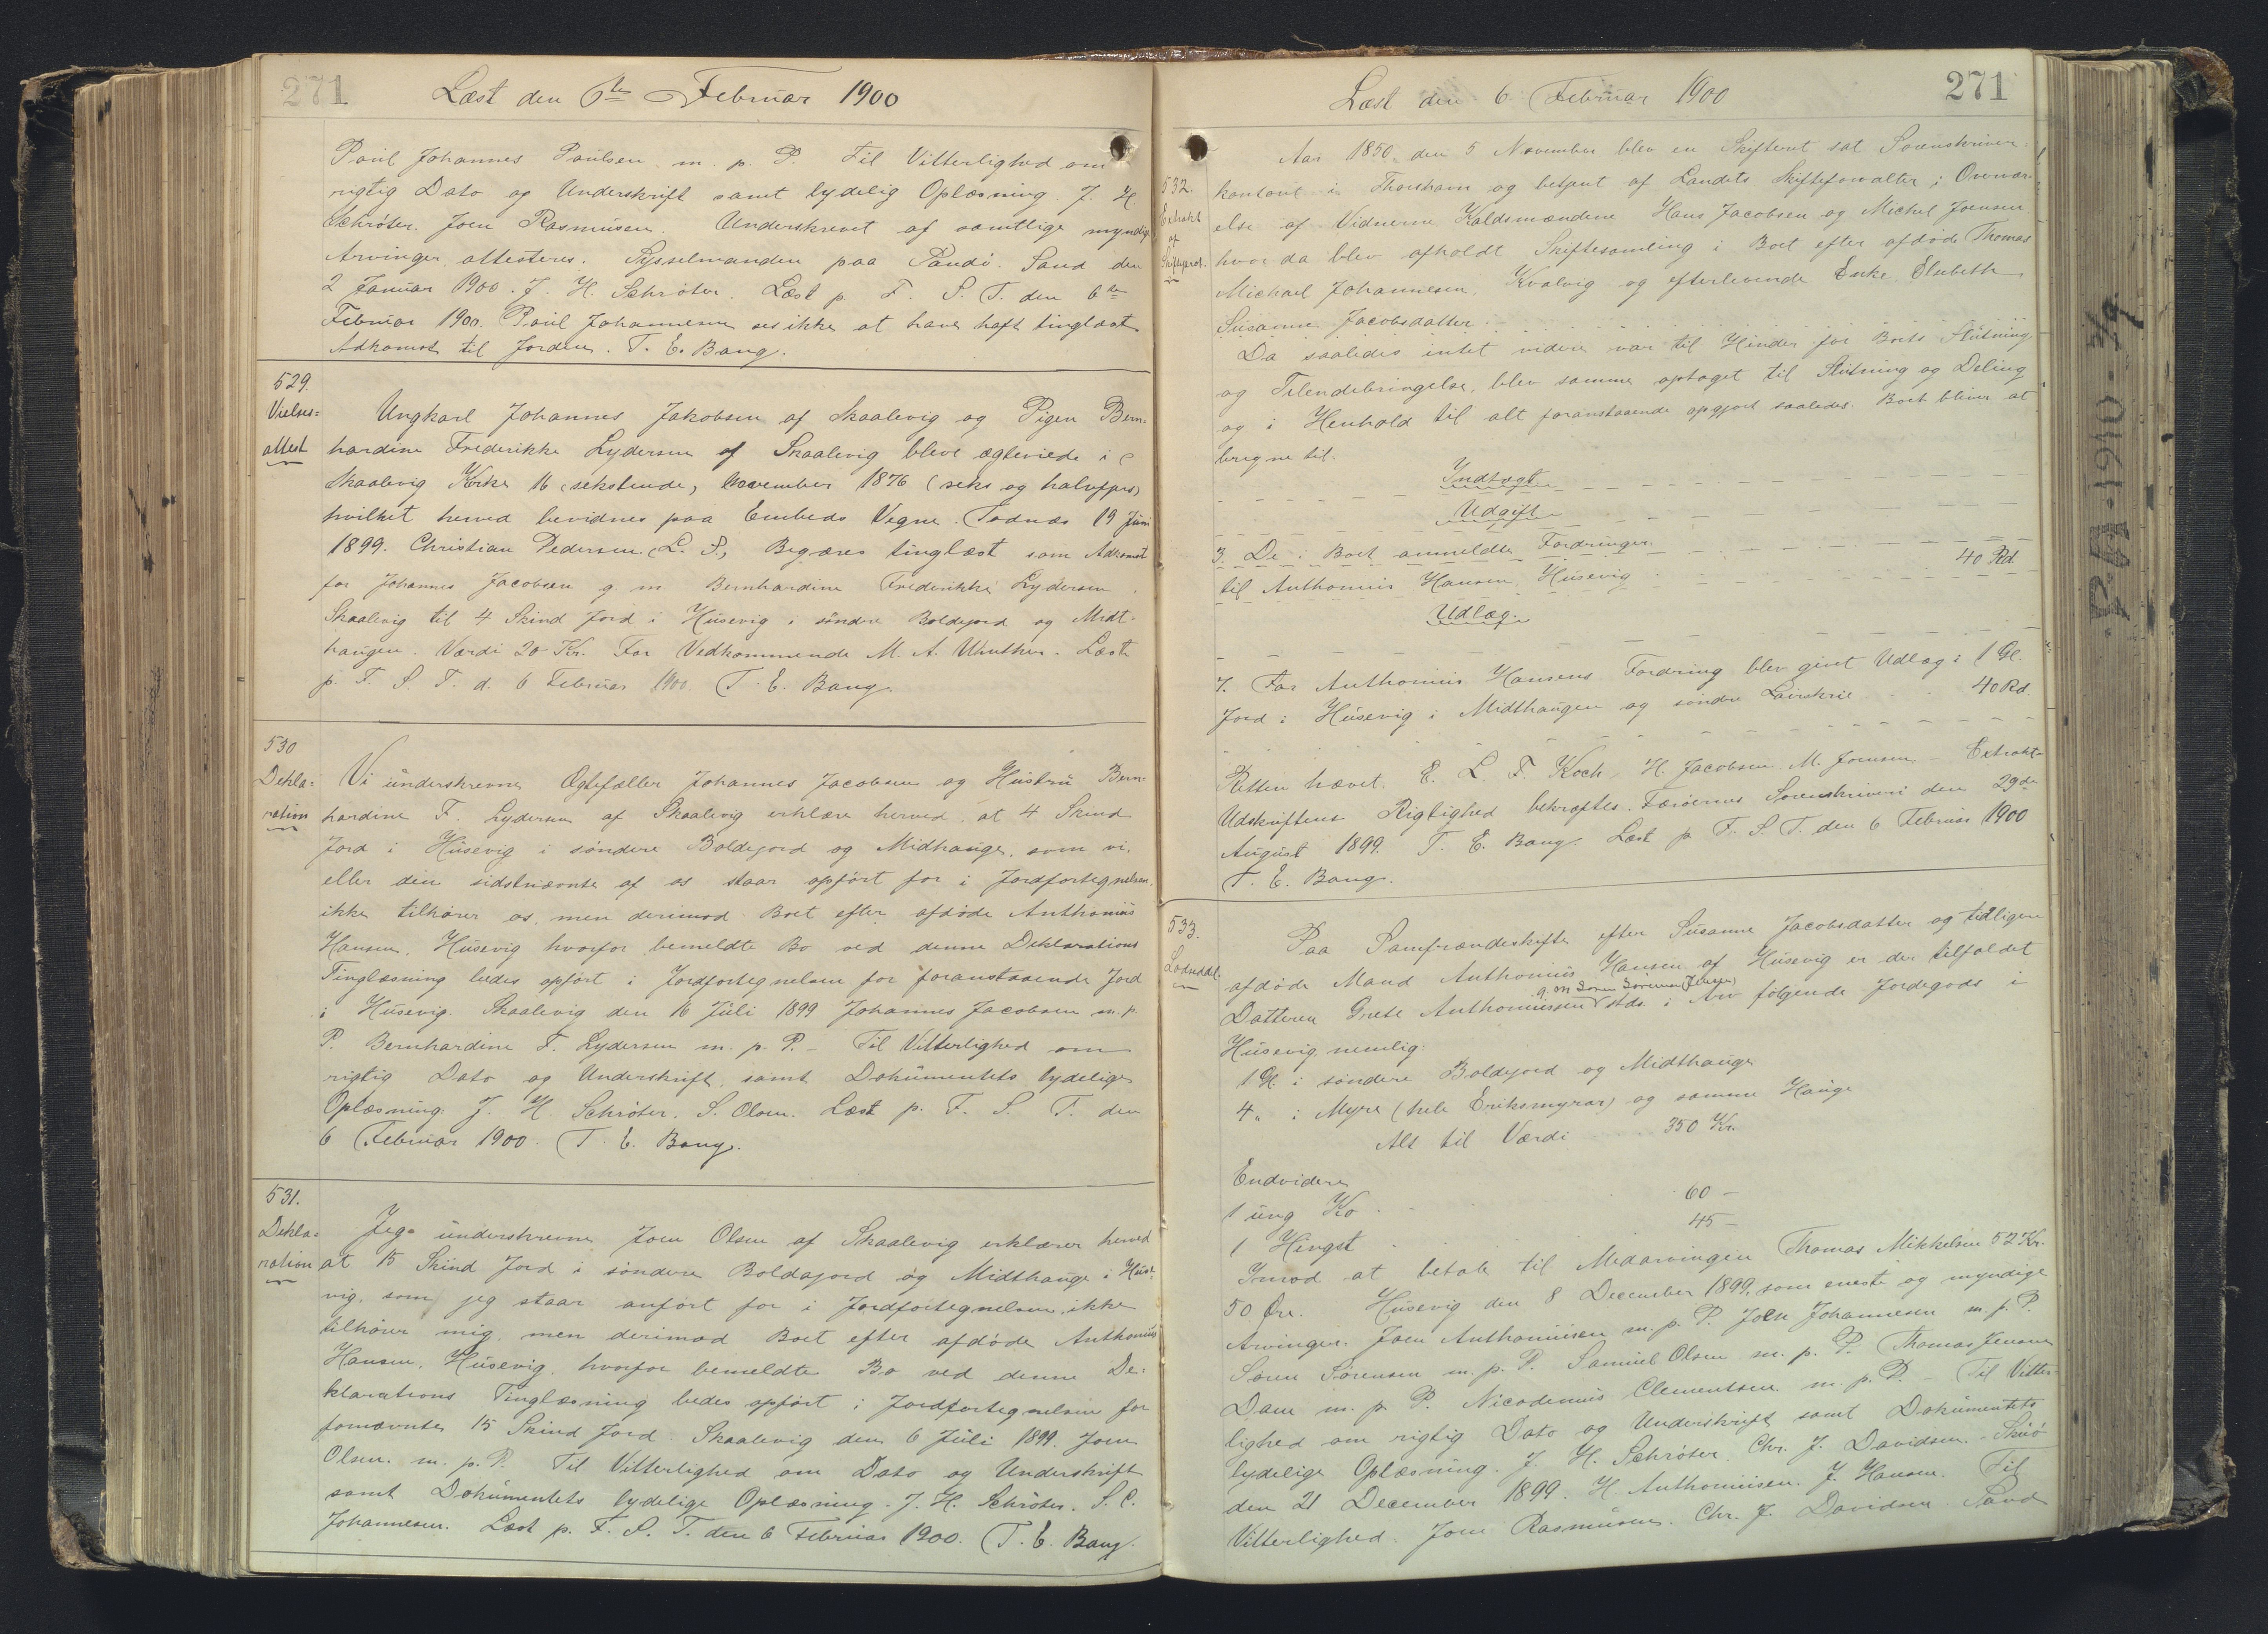 271
Læst den 6te Februar 1900
Poul Johannes Poulsen m. p. P. Til Vitterlighed om
rigtig Dato og Underskrift samt lydelig Oplæsning J. H.
Schröter. Joen Rasmusen. Underskrevet af samtlige myndige
Arvinger attesteres. Sysselmanden paa Sandö. Sand den
2 Januar 1900. J. H. Schröter. Læst p. F. S. T. den 6te
Februar 1900. Poul Johannesen ses ikke at have haft tinglæst
Adkomst til Jorden. T. E. Bang.
529.
Vielses=
attest
Ungkarl Johannes Jakobsen af Skaalevig og Pigen Bern=
hardine Frederikke Lydersen af Skaalevig bleve ægteviede i
Skaalevig Kirke 16 (sekstende) November 1876 (seks og halvfjers)
hvilket herved bevidnes paa Embeds Vegne. Todnæs 19 Juni
1899. Christian Pedersen (L. S.) Begæres tinglæst som Adkomst
for Johannes Jacobsen g. m. Bernhardine Frederikke Lydersen
Skaalevig til 4 Skind Jord i Húsevig i söndre Boldejord og Midt-
haugen. Værdi 20 Kr. For Vedkommende M. A. Winther. Læst
p. F. S. T. d. 6 Februar 1900. T. E. Bang.
530
Dekla=
ration
Vi underskrevne Ægtefæller Johannes Jacobsen og Hustru Bern=
hardine F. Lydersen af Skaalevig erklære herved, at 4 Skind
Jord i Húsevig i söndere Boldejord og Midhauge, som vi
eller den sidstnævnte af os staar opfört for i Jordfortegnelsen,
ikke tilhörer os, men derimod Boet efter afdöde Anthonius
Hansen, Húsevig hvorfor bemeldte Bo ved denne Deklarations
Tinglæsning bedes opfört i Jordfortegnelsen for foranstaaende Jord
i Húsevig. Skaalevig den 16 Juli 1899 Johannes Jacobsen m. p.
P. Bernhardine F. Lydersen m. p. P. – Til Vitterlighed om
rigtig Dato og Underskrift, samt Dokumentets lydelige
Oplæsning. J. H. Schröter. S. Olsen. Læst p. F. S. T. den
6 Februar 1900. T. E. Bang.
531.
Dekla=
ration
Jeg underskrevne Joen Olsen af Skaalevig erklærer herved
at 15 Skind Jord i söndere Boldejord og Midthauge i Húse=
vig, som jeg staar anfört for i Jordfortegnelsen, ikke
tilhörer mig, men derimod Boet efter afdöde Anthonius
Hansen, Húsevig, hvorfor bemeldte Bo ved denne De=
klarations Tinglæsning bedes opfört i Jordfortegnelsen for
fornævnte 15 Skind Jord. Skaalevig den 6 Juli 1899. Joen
Olsen. m. p. P. Til Vitterlighed om Dato og Underskrift
samt Dokumentets lydelige Oplæsning. J. H. Schröter. S. C.
Johannesen. Læst p. F. S. T. den 6 Februar 1900. T. E. Bang.
Læst den 6 Februar 1900
271
532.
Extrakt
af
Skifteprot.
Aar 1850 den 5 November blev en Skifteret sat Sorenskriver=
kontoret i Thorshavn og betjent af Landets Skifteforvalter i Overvær=
else af Vidnerne Kaldsmændene Hans Jacobsen og Michel Joensen
hvor da blev afholdt Skiftesamling i Boet efter afdöde Thomas
Michael Johannesen, Kvalvig og efterlevende Enke Elsebeth
Susanne Jacobsdatter.
Da saaledes intet videre var til Hinder for Boets Slutning
og Tilendebringelse, blev samme optaget til Slutning og Deling
og i Henhold til alt foranstaaende opgjort saaledes. Boet bliver at
beregne til.
Indtægt
Udgift
3. De i Boet anmeldte Fordringer
til Anthonius Hansen, Húsevig 40 Rd.
Udlæg.
7. For Anthonius Hansens Fordring blev givet Udlæg i 1 Gl.
Jord i Húsevig i Midthaugen og söndre 40 Rd.
Retten hævet. E. L. F. Koch, H. Jacobsen M. Joensen – Extrakt-
Udskriftens Rigtighed bekræftes. Færöernes Sorenskriveri den 29de
August 1899. T. E. Bang. Læst p. F. S. T. den 6 Februar 1900
T. E. Bang.
533.
Lodseddel.
Paa Samfrændeskifte efter Susanne Jacobsdatter og tidligere
afdöde Mand Anthonius Hansen af Húsevig er der tilfaldet
g. m. Sören Sörensen (Jensen)
Datteren Grete Anthoniussen stds. i Arv fölgende Jordegods i
Húsevig nemlig:
1 Gl. i söndere Boldejord og Midthauge
4 „ i Myre (hele Eriksmyrar) og samme Hauge
Alt til Værdi 350 Kr.
Endvidere
1 ung Ko 60 –
1 Hingst 45 –
Imod at betale til Medarvingen Thomas Mikkelsen 52 Kr.
50 Öre. Húsevig den 8 December 1899, som eneste og myndige
Arvinger. Joen Anthoniusen m. p. P. Joen Johannesen m. p. P.
Sören Sörensen m. p. P. Samuel Olsen m. p. P. Thomas Jensen
Dam m. p. P. Nicodemus Clementsen m. p. P. – Til Vitter=
lighed om rigtig Dato og Underskrift samt Dokumentets
lydelige Oplæsning. J. H. Schröter. Chr. J. Davidsen. – Skuö
den 21 December 1899. H. Anthoniusen. J. Hansen. Til
Vitterlighed. Joen Rasmusen. Chr. J. Davidsen. Sand